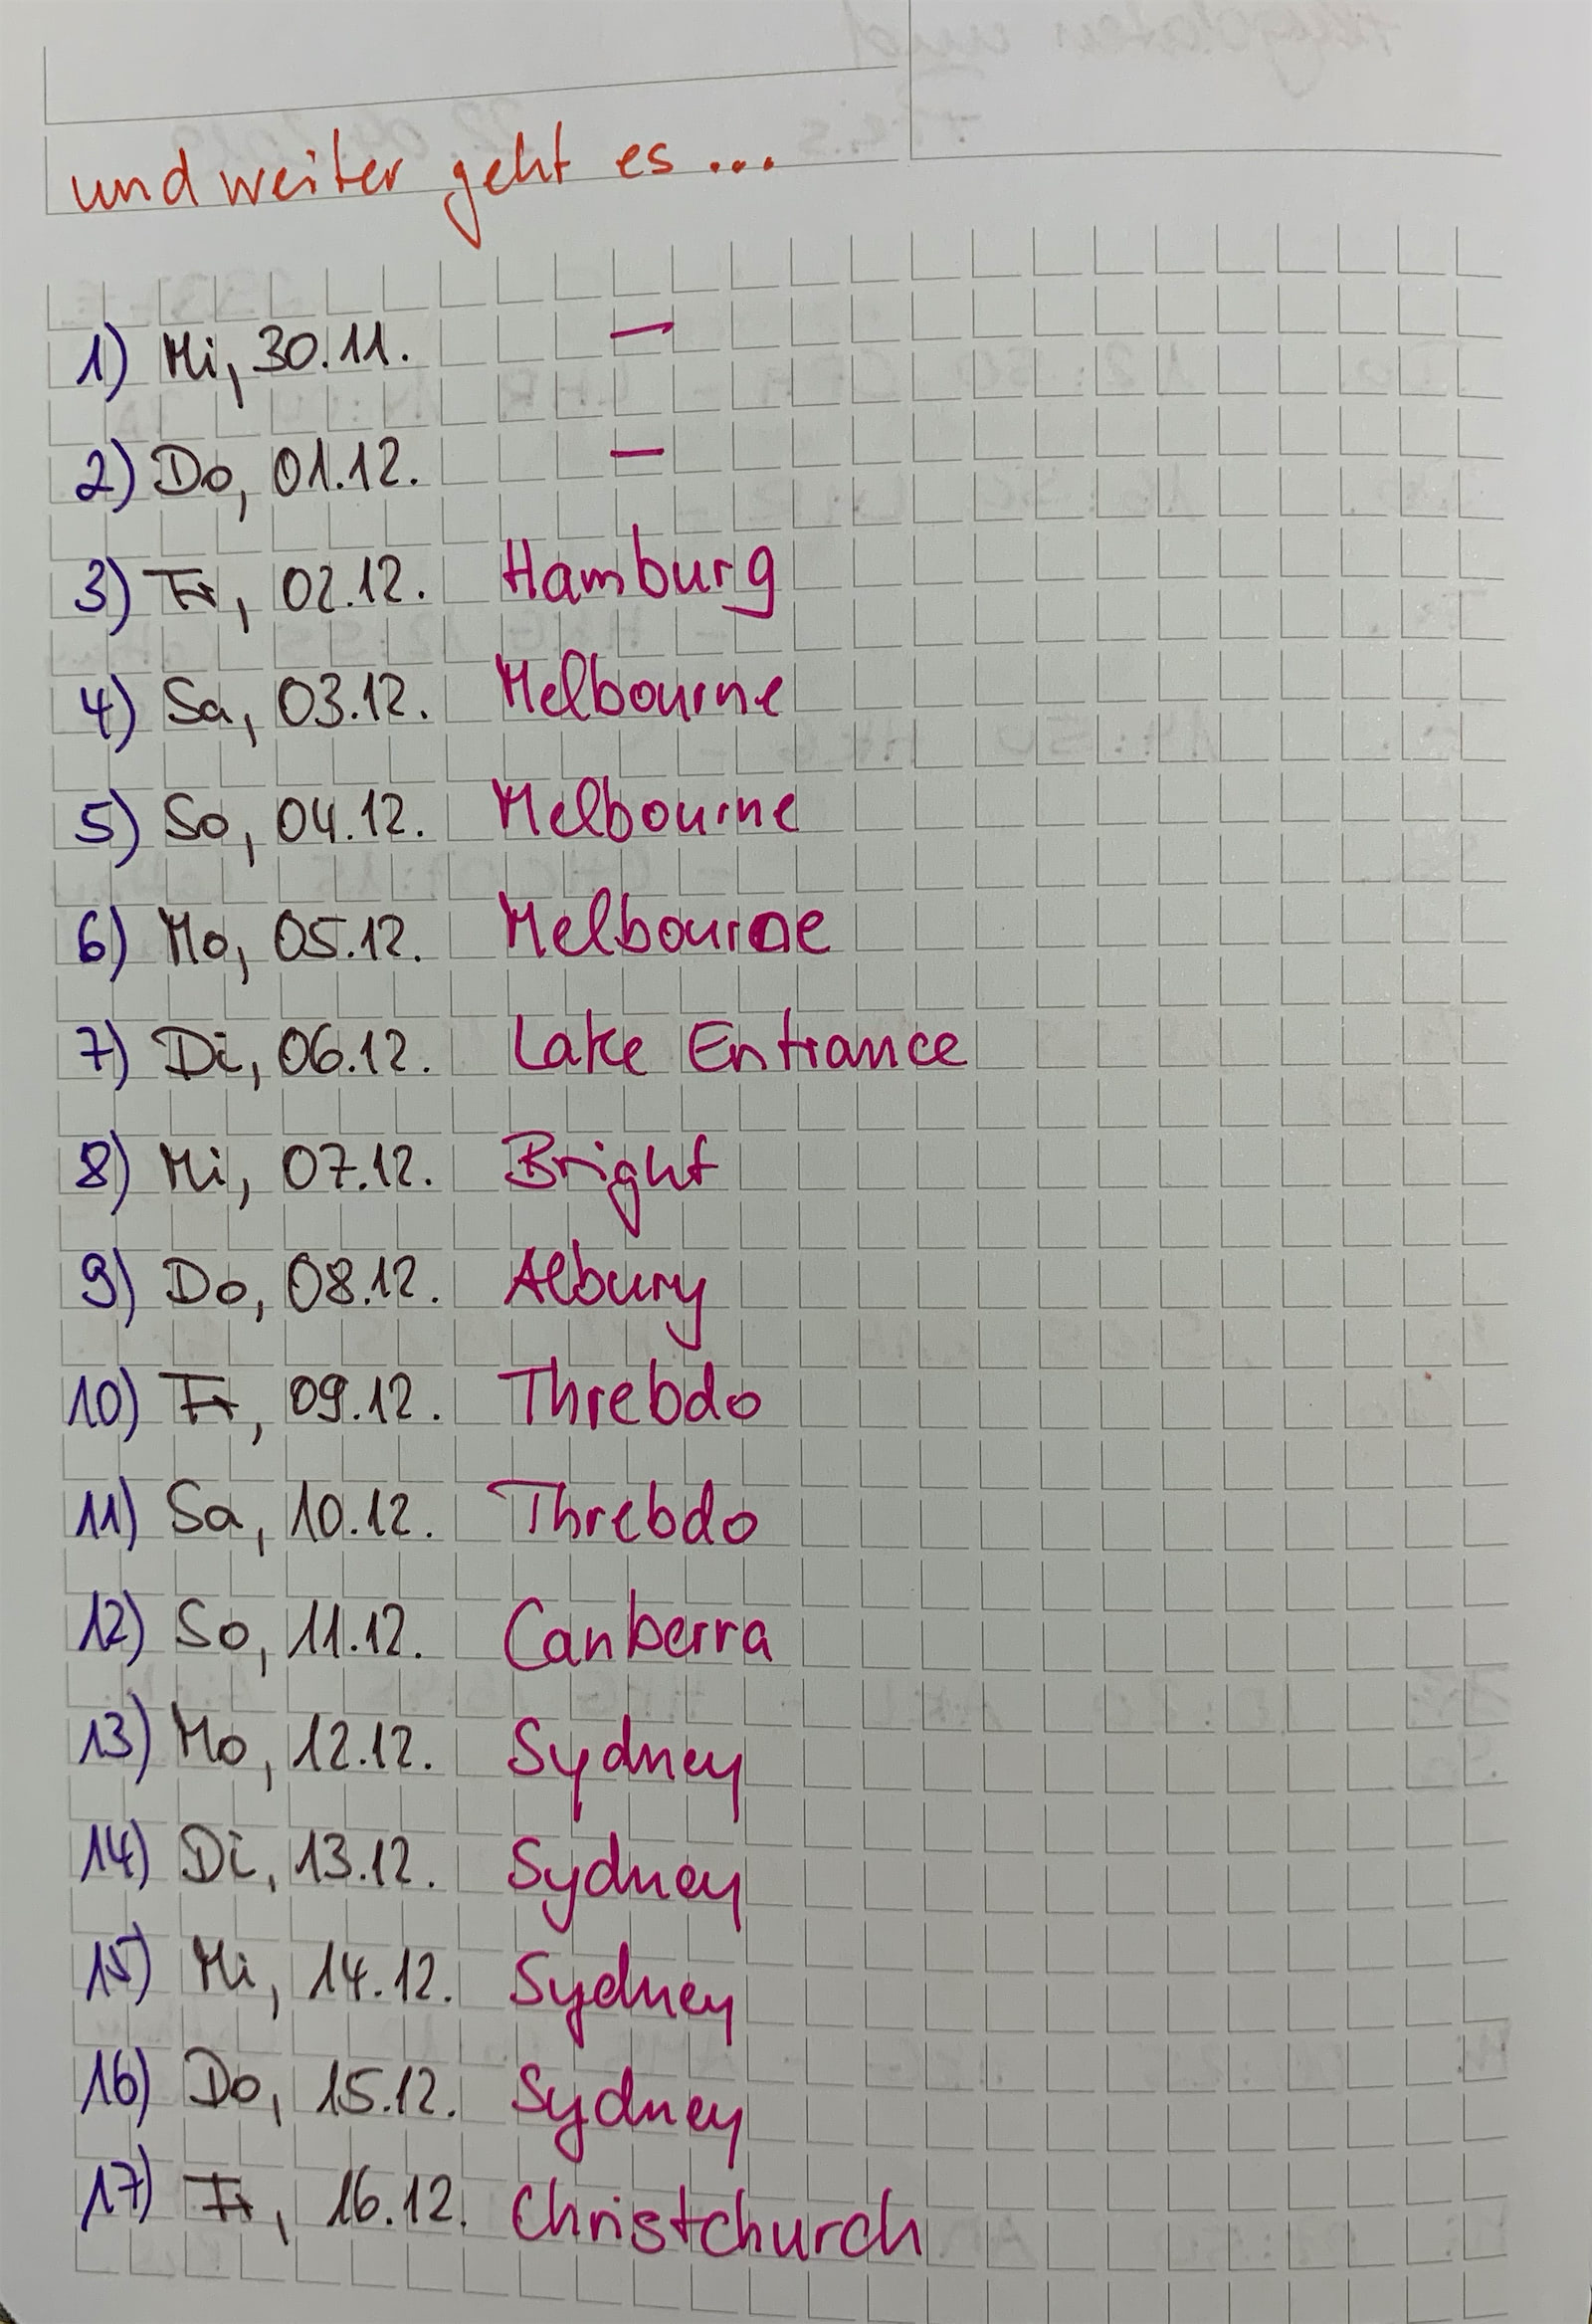 und weiter geht es ...
1) Mi, 30.11. —
2) Do, 01.12. —
3) Fr, 02.12. Hamburg
4) Sa, 03.12. Melbourne
5) So, 04.12. Melbourne
6) Mo, 05.12. Melbourne
7) Di, 06.12. Lake Entrance
8) Mi, 07.12. Bright
9) Do, 08.12. Albury
10) Fr, 09.12. Threbdo
11) Sa, 10.12. Threbdo
12) So, 11.12. Canberra
13) Mo, 12.12. Sydney
14) Di, 13.12. Sydney
15) Mi, 14.12. Sydney
16) Do, 15.12. Sydney
17) Fr, 16.12. Christchurch